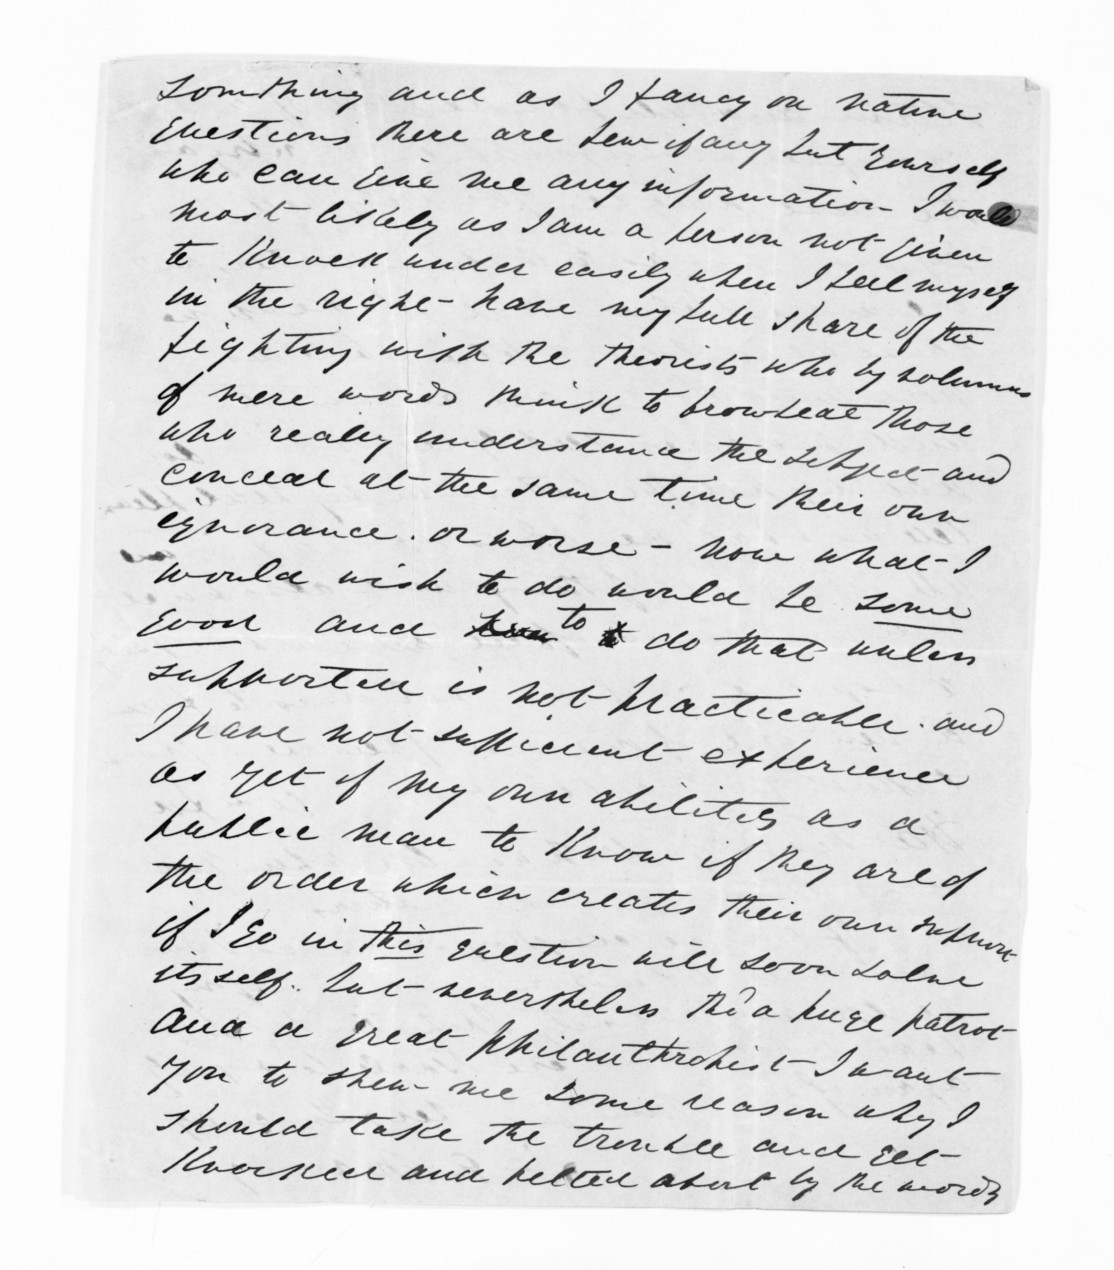 something and as I fancy on native
questions there are few if any but yourself
who can give me any information I would
most likely as I am a person not given
to Knock under easily when I feel myself
in the right - have my full share of the
fighting with the theorists who by volumns
of mere words think to browbeat those
who really understand the subject and
conceal at the same time their own
ignorance . or worse - now what I
would wish to do would be some
good and to do that unless
supported is not practicable . and
I have not sufficient experience
as yet of my own abilities as a
public man to Know if they are of
the order which creates their own support
if I go in this question will soon solve
itself. but nevertheless tho' a huge patrot
and a great philanthropist I want
you to shew me some reason why I
should take the trouble and get
Knocked and pelted about by the words